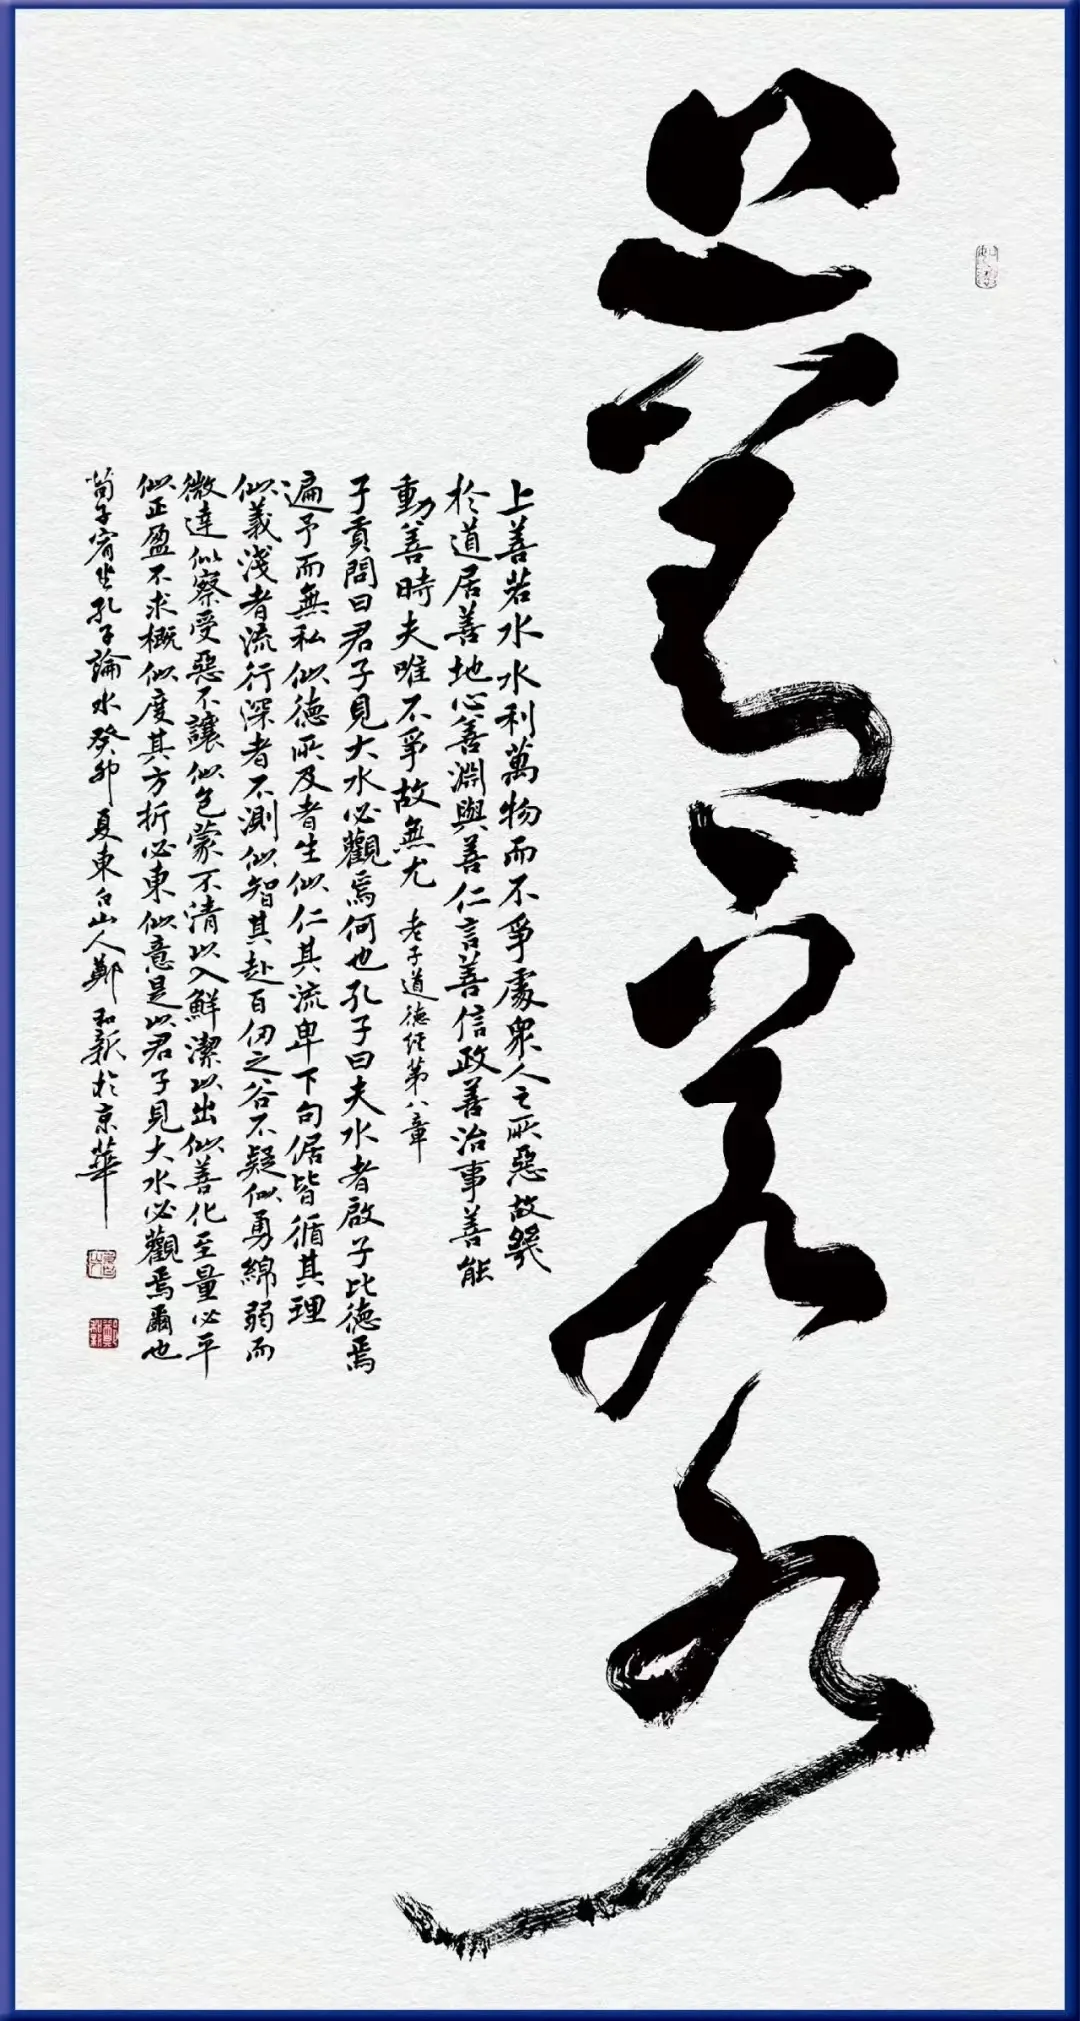 上善若水
上善若水水利萬物而不爭處衆人之所惡故幾
於道居善地心善淵與善仁言善信政善治事善能
動善時夫唯不爭故無尤 老子道德經第八章
子貢問曰君子見大水必觀焉何也孔子曰夫水者啟子比德焉
遍予而無私似德所及者生似仁其流卑下句倨皆循其理
似義淺者流行深者不測似智其赴百仞之谷不疑似勇綿弱而
微達似察受惡不讓似包蒙不清以入鮮潔以出似善化至量必平
似正盈不求概似度其方折必東似意是以君子見大水必觀焉爾也
荀子宥坐孔子論水癸卯夏東台山人鄭和新於京華